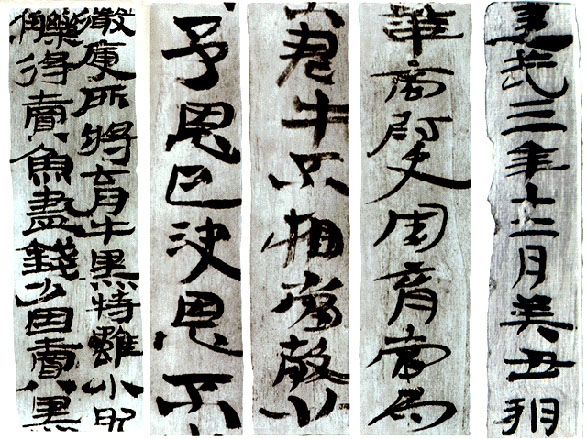 建武三年十二月癸丑朔
華商尉史周育當為
君牛不相當穀廿
予恩已決恩不
微庾所將育牛黑特雖小肥
觻得賣魚盡錢少因賣黑